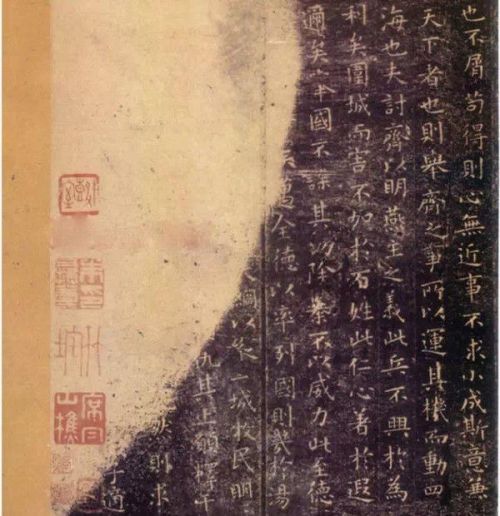 也不屑苟得則心無近事不求小成斯意兼
天下者也則舉齊之事所以運其機而動四
海也夫討齊以明燕主之義此兵不興於為
利矣圍城而害不加於百姓此仁心著於遐
邇矣舉國不謀其功除暴不以威力此至德
矣邁全德以率列國則幾於湯
綱以縱二城牧民明
仇其上願釋干
則求
子適
山樵